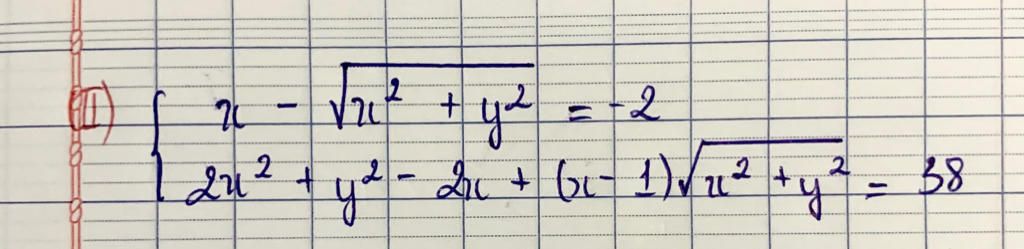 II) { x - √(x² + y²) = -2
2x² + y² - 2x + (x - 1)√(x² + y²) = 38